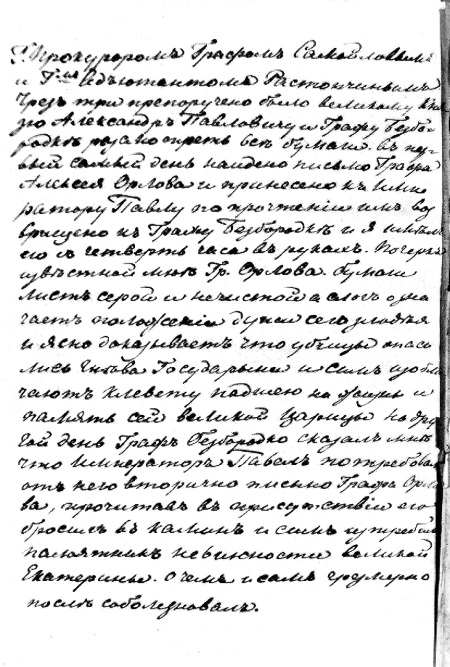 Г: Прокуроромъ Графомъ Самойловымъ
и Г: адъютантомъ Растопчинымъ
Чрезъ три препоручено было великому Кня
зю Александръ Павловичу и Графу Безбо
родкѣ разсмотреть всѣ бумаги. въ пер
вый самый день найдено письмо Графа
Алексея Орлова и принесено къ Импе
ратору Павлу по прочтеніи имъ воз
вращено къ Графу Безбородкѣ и я имѣлъ
его съ четверть часа въ рукахъ. Почеркъ
извѣстной мнѣ Гр. Орлова. бумаги
листъ серой и нечистой а слогъ озна
чаетъ положеніе души сего злодѣя
и ясно доказываетъ что убийцы опаса
лись гнѣва Государыни и симъ изобли
чаютъ клевету падшею на жизнь и
память сей великой Царицы на дру
гой день Графъ Безбородко сказалъ мнѣ
что Императоръ Павелъ потребовал
отъ него вторично письмо Графа Орло
ва, прочитавъ въ присутствіи его
бросилъ въ каминъ и симъ истребилъ
памятникъ невинности великой
Екатерины. О чемъ и самъ чрезмерно
послѣ соболезновалъ.